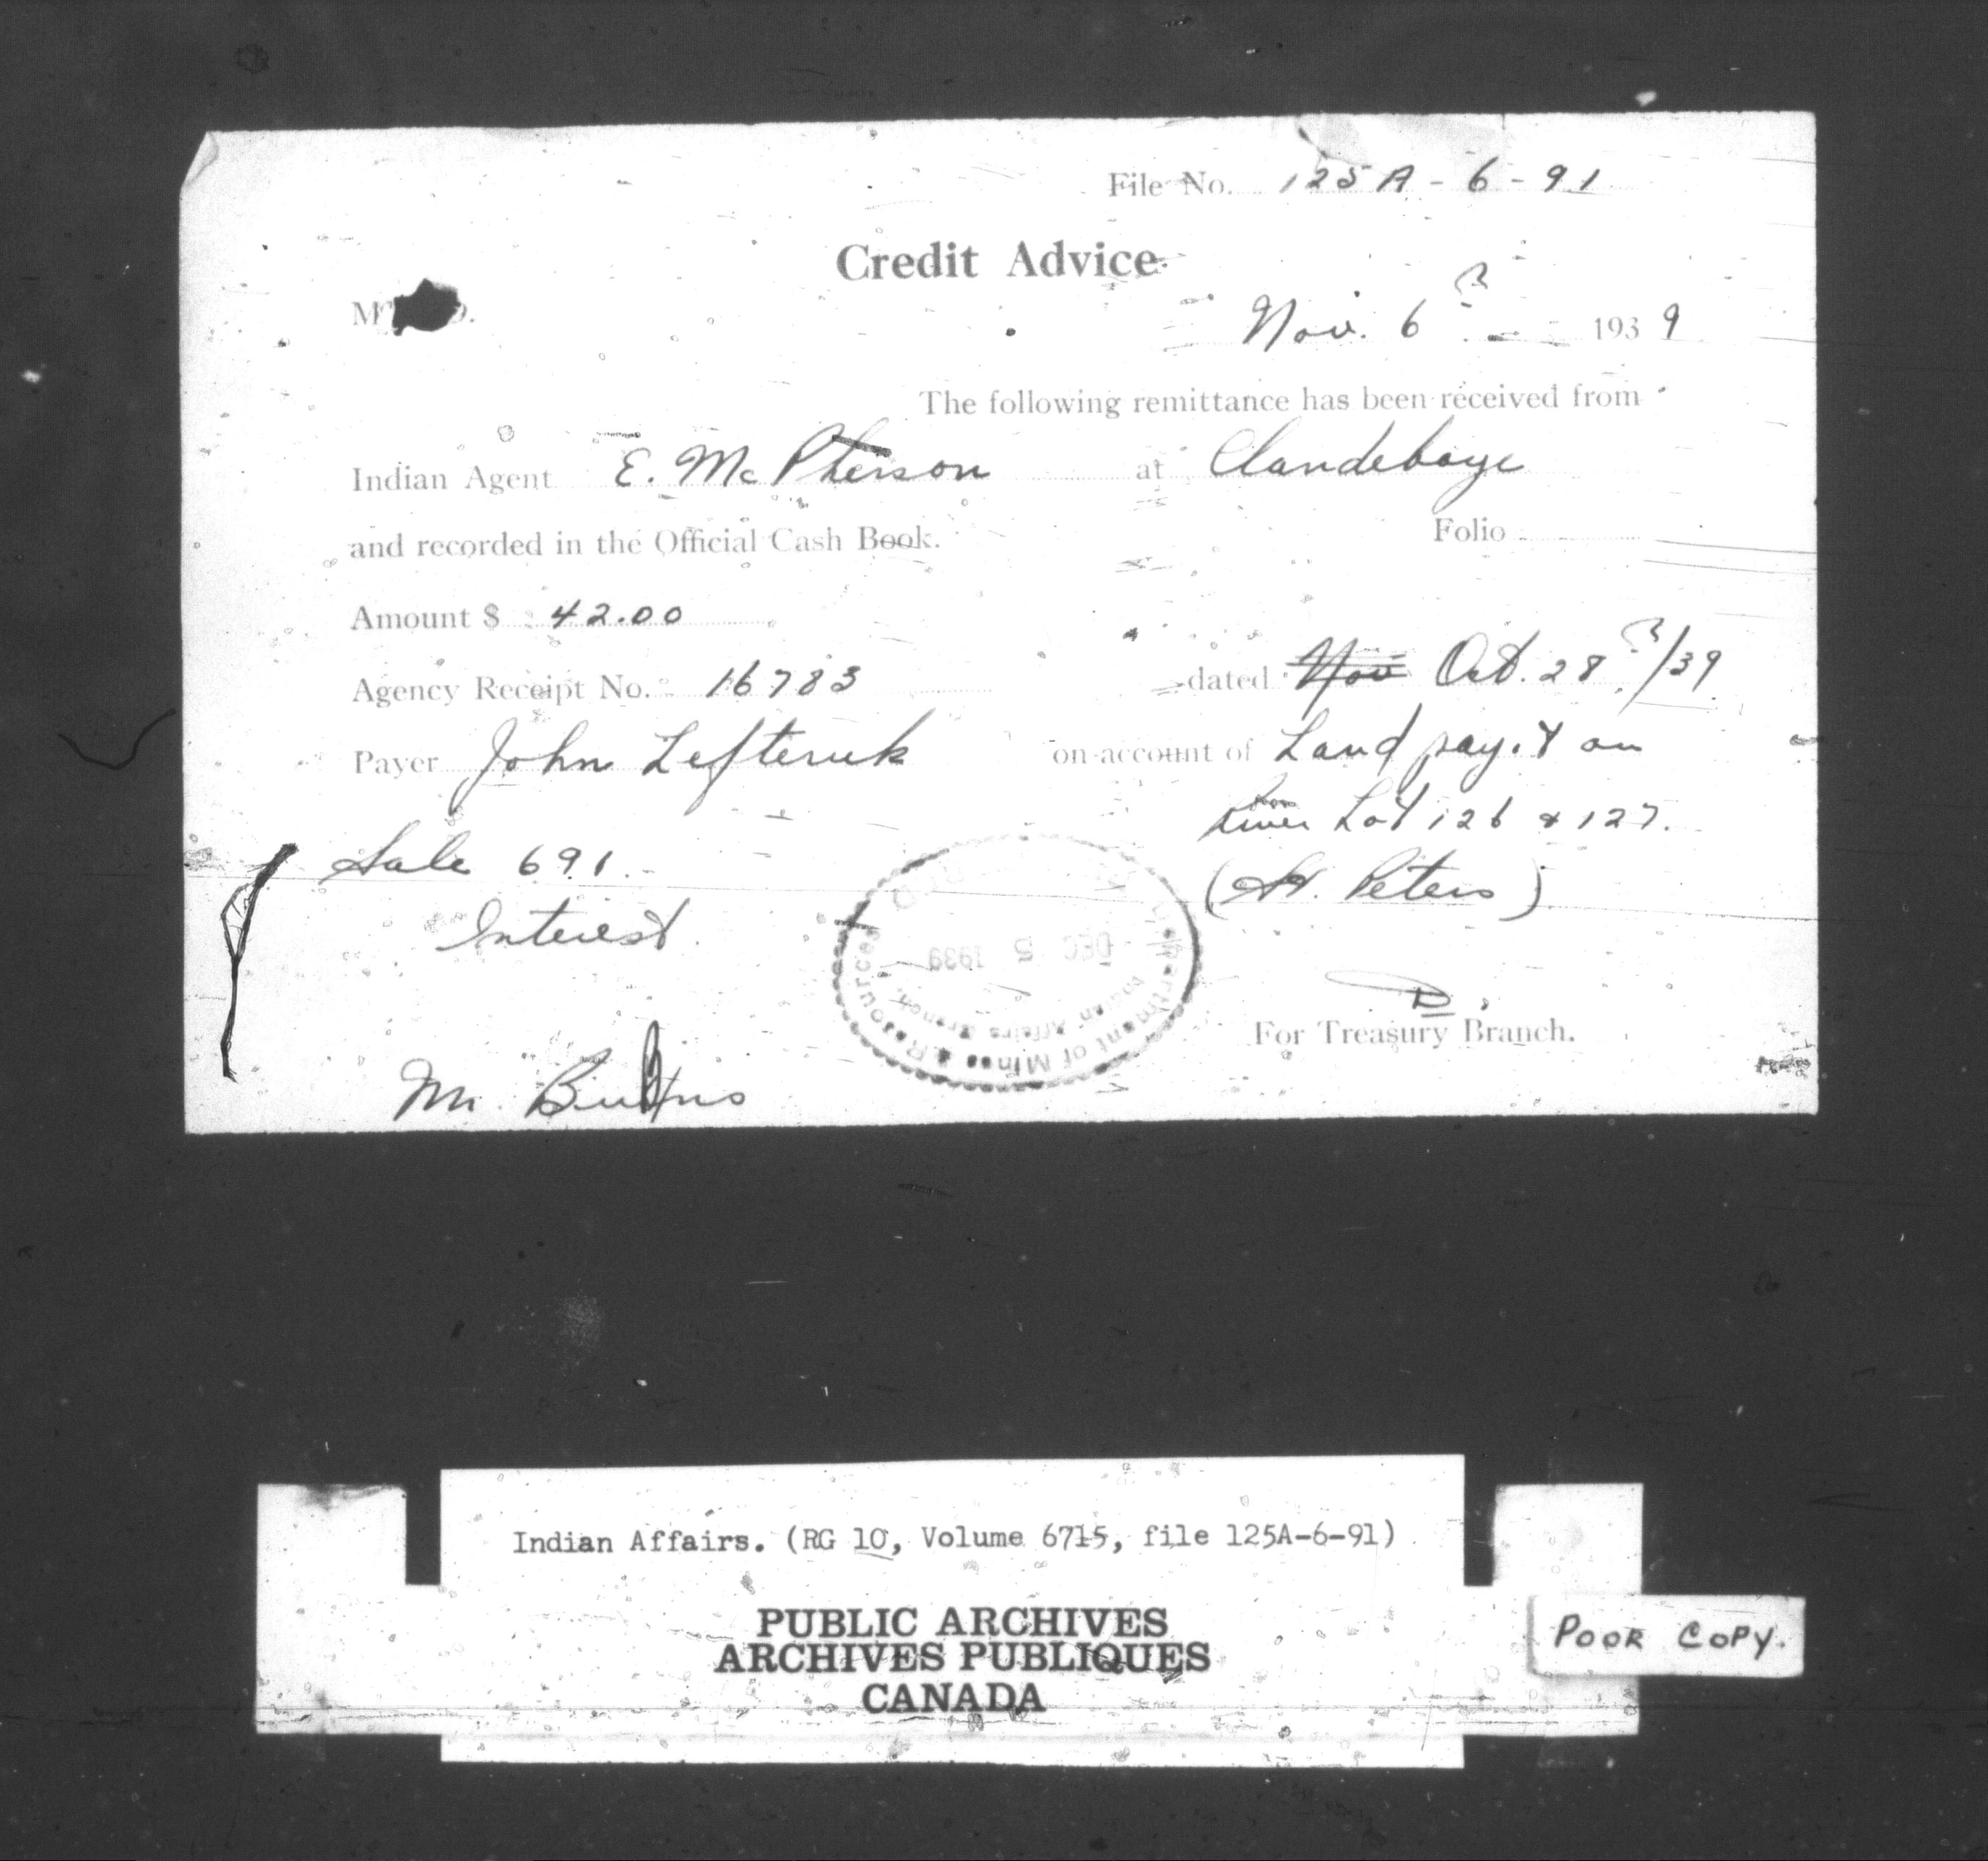 File No. 125A-6-91
Credit Advice
Nov. 6 1939
The following remittance has been received from
Indian Agent E. McPherson at Clandeboye
and recorded in the Official Cash Book. Folio
Amount $ 42.00
Agency Receipt No. 16783 dated Nov Oct. 28/39
Payer John Lefteruk on account of Land pay.t on
River Lot 126 & 127.
Sale 691.
(H. Peters)
Interest.
Department of Mines & Resources
Indian Affairs Branch.
DEC 5 1939
For Treasury Branch.
Mr.
Indian Affairs. (RG 10, Volume 6715, file 125A-6-91)
PUBLIC ARCHIVES
ARCHIVES PUBLIQUES
CANADA
POOR COPY.